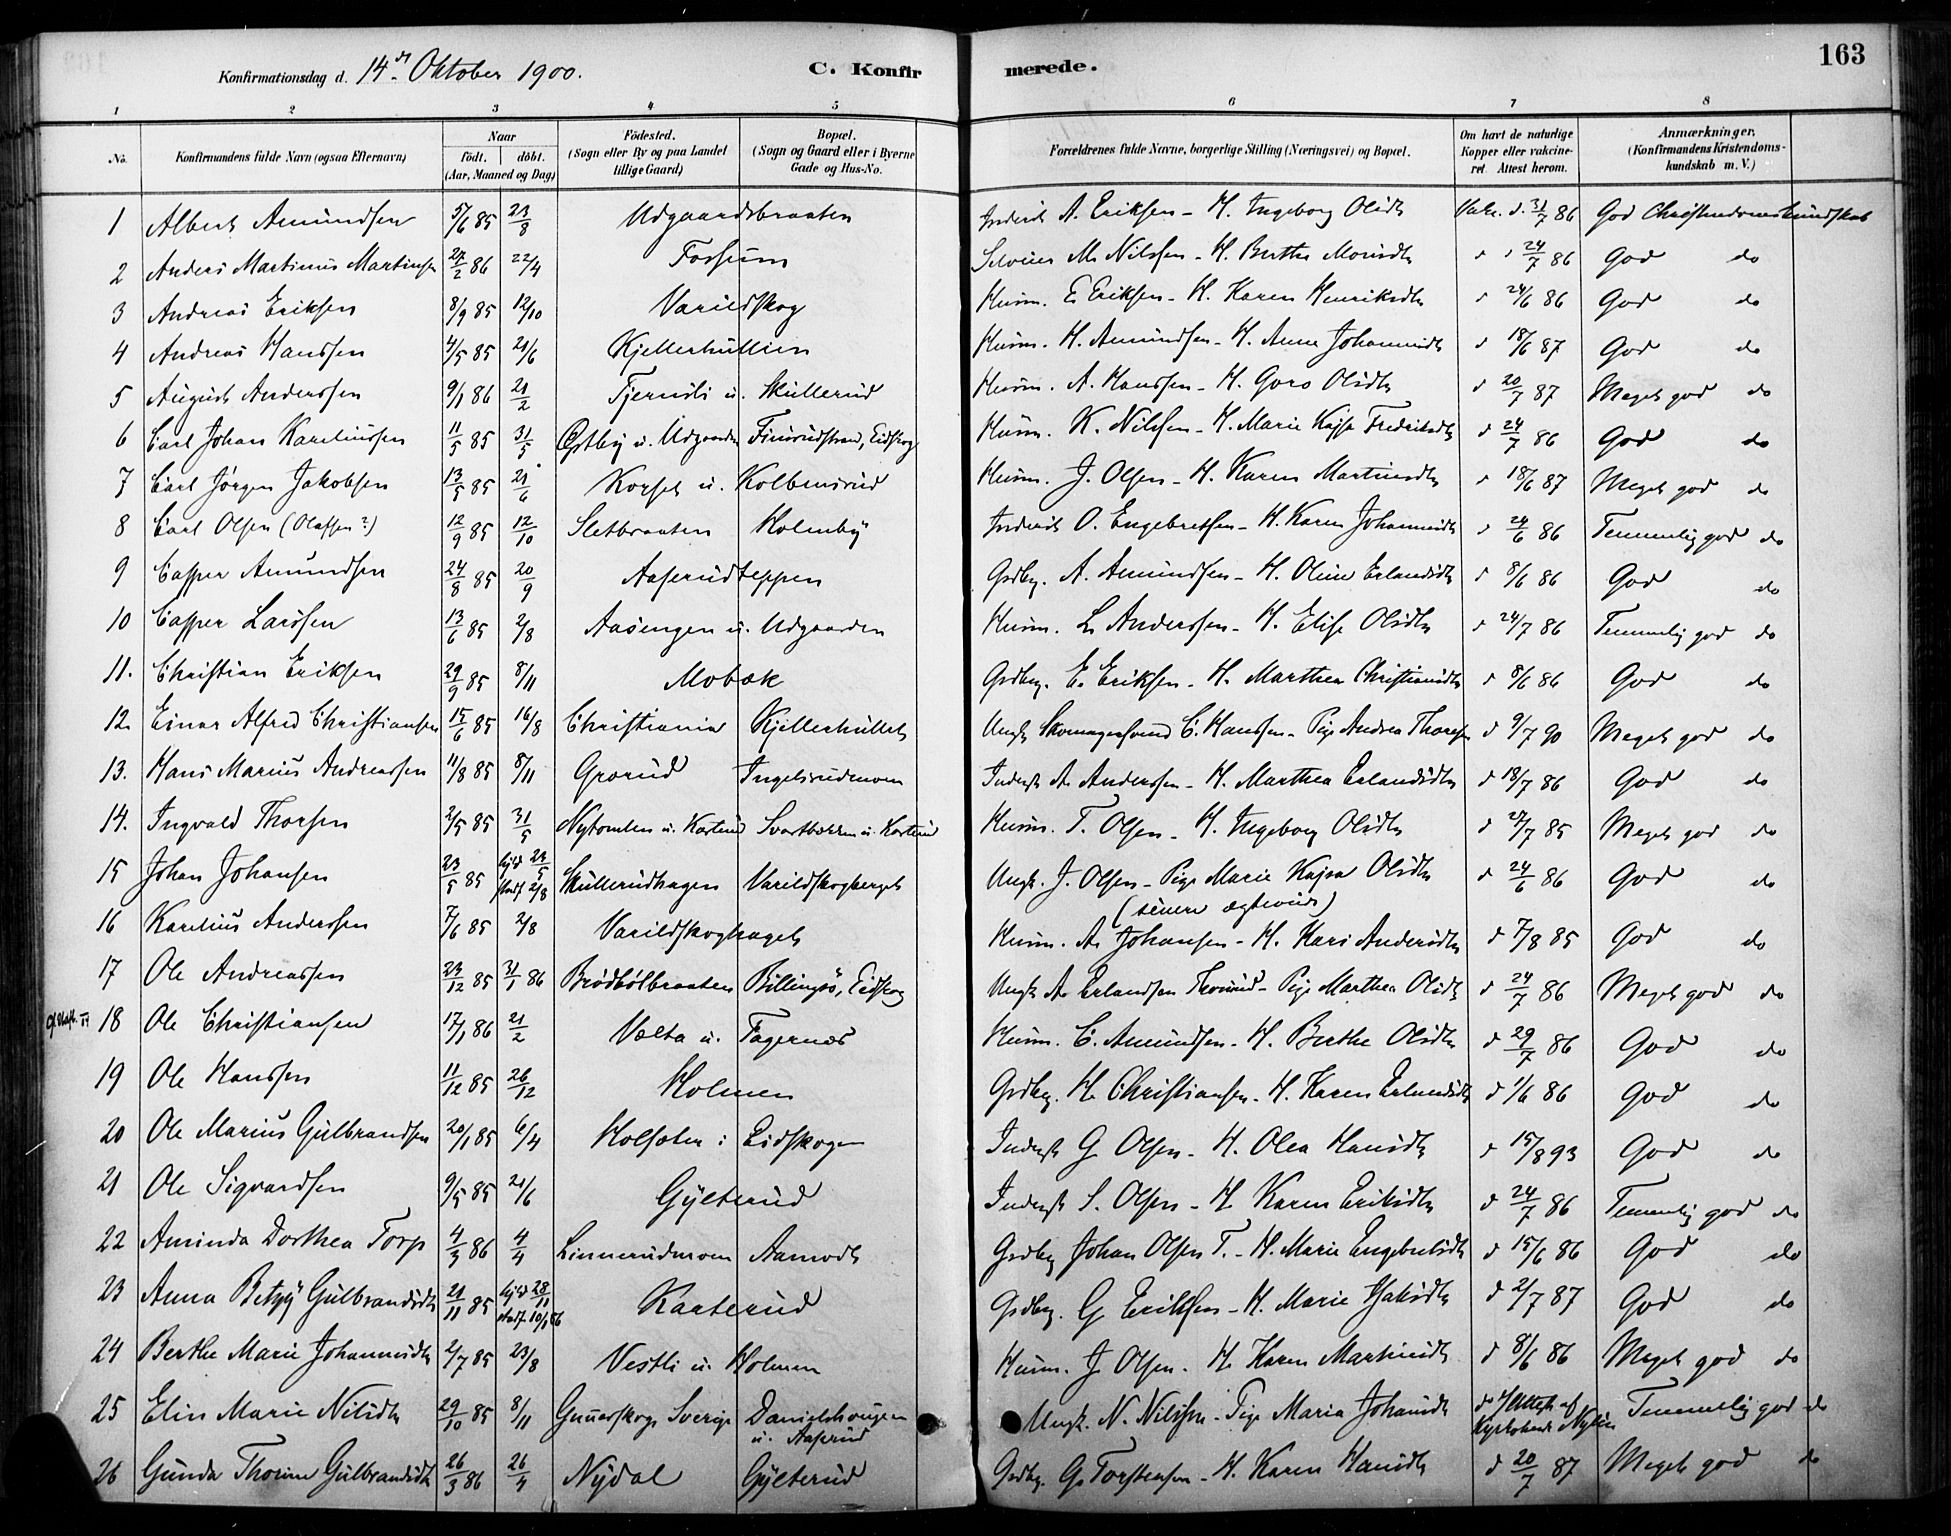 Konfirmationsdag d. 14de Oktober 1900.
C. Konfirmerede.
163
1 2 3 4 5 6 7 8
No. Konfirmandens fulde Navn (ogsaa Efternavn) Naar födt. döbt. (Aar, Maaned og Dag) Födested. (Sogn eller By og paa Landet tillige Gaard) Bopæl. (Sogn og Gaard eller i Byerne Gade og Hus-No. Forældrenes fulde Navne, borgerlige Stilling (Næringsvei) og Bopæl. Om havt de naturlige Kopper eller vaccineret Attest herom. Anmærkninger, (Konfirmandens Kristendomskundskab m. V.)
1 Albert Amundsen 5/6 85 23/8 Udgaardsbraaten Inderst A. Eriksen - H. Ingeborg Olsdtr Vakc. d. 31/7 86 God Christendomskundskab
2 Anders Martinus Martinsen 27/2 86 22/4 Fossum Selveier M. Nilsen - H. Berthe Monsdtr d 24/7 86 God do
3 Andreas Eriksen 8/9 85 12/10 Varildskog Husm. E. Eriksen - H. Karen Henriksdtr d 24/6 86 God do
4 Andreas Hanssen 4/5 85 21/6 Kjellerhullien Husm. H. Amundsen - H. Anne Johannesdtr d 18/6 87 God do
5 August Anderssen 9/1 86 21/2 Tjernsli u. Skullerud Husm. A. Hanssen - H. Goro Olsdtr d 20/7 87 Meget god do
6 Carl Johan Kareliussen 11/5 85 31/5 Østby u. Udgaarden Finsrudstrand, Eidskog Husm. K. Nilsen - H. Marie Kajsa Fredriksdtr d 24/7 86 God do
7 Carl Jørgen Jakobsen 13/5 85 21/6 Korset u. Kolbensrud Husm. J. Olsen - H. Karen Martinsdtr d 18/6 87 Meget god do
8 Carl Olsen (Olafsen?) 12/9 85 12/10 Sletbraaten Holmby Inderst O. Engebretsen - H. Karen Johannesdtr d 24/6 86 Temmelig god do
9 Casper Amundsen 24/8 85 20/9 Aaserudteppen Grdbr. A. Amundsen - H. Oline Erlandsdtr d 8/6 86 God do
10 Casper Larssen 13/6 85 2/8 Aasengen u. Udgaarden Husm. L. Anderssen - H. Elise Olsdtr d 24/7 86 Temmelig god do
11. Christian Eriksen 29/9 85 8/11 Mobæk Grdbr. E. Eriksen - H. Marthea Christiansdtr d 8/6 86 God do
12 Einar Alfred Christiansen 15/6 85 16/8 Christiania Kjellerhullet Ungk. Skomagersvend C. Hanssen - Pige Andrea Thoresen d 9/7 90 Meget god do
13. Hans Marius Andreassen 11/8 85 8/11 Grorud Ingelsrudmoen Inderst A. Anderssen - H. Marthea Erlandsdtr d 18/7 86 God do
14. Ingvald Thorsen 2/5 85 31/5 Nytomten u. Kasterud Svartbækken u. Kasterud Husm. T. Olsen - H. Ingeborg Olsdtr d 27/7 85 Meget god do
15 Johan Johansen 23/5 85 hjd. 23/5 stadf. 2/8 Skullerudhagen Varildskogberget Ungk. J. Olsen - Pige Marie Kajsa Olsdtr (senere ægteviede) d 24/6 86 God do
16 Karelius Anderssen 7/6 85 2/8 Varildskoghaget Husm. A. Johansen - H. Kari Andersdtr d 7/8 85 God do
17 Ole Andreassen 23/12 85 31/1 86 Brødbølbraaten Billingsø, Eidskog Ungk. A. Erlandsen - Pige Marthea Olsdtr d 24/7 86 Meget god do
18 Ole Christiansen 17/1 86 21/2 Vælta u. Fagernæs Husm. C. Amundsen - H. Berthe Olsdtr d 29/7 86 God do
19 Ole Hanssen 11/12 85 26/12 Holmen Grdbr. H. Christiansen - H. Karen Erlandsdtr d 1/6 86 God do
20 Ole Marius Gulbrandsen 20/1 85 6/4 Holsæter i Eidskogen Inderst G. Olsen - H. Olea Hansdtr d 15/8 93 God do
21 Ole Sigvardsen 9/5 85 21/6 Gylterud Inderst S. Olsen - H. Karen Eriksdtr d 24/7 86 Temmelig god do
22 Aminda Dorthea Torp 4/3 86 4/4 Linnerudmoen Aamodt Grdbr. Johan Olsen T. - H. Marie Engebretsdtr d 15/6 86 God do
23 Anna Betzy Gulbrandsdtr 21/11 85 hjd. 28/11 stadf. 10/1 86 Kasterud Grdbr. G. Eriksen - H. Marie Isaksdtr d 2/7 87 God do
24 Berthe Marie Johannesdtr 2/7 85 23/8 Vestli u. Holmen Husm. J. Olsen - H. Karen Martinsdtr d 8/6 86 Meget god do
25 Elin Marie Nilsdtr 29/10 85 8/11 Gunnerskogs Sverige Danielshougen u. Aaserud Ungk. N. Nilsson - Pige Maria Johansdtr do Attest af Nylin Temmelig god do
26 Gunda Thorine Gulbrandsdtr 26/3 86 26/4 Nydal Gylterud Grdbr. G. Torstensen - H. Karen Hansdtr d 20/7 87 Meget god do